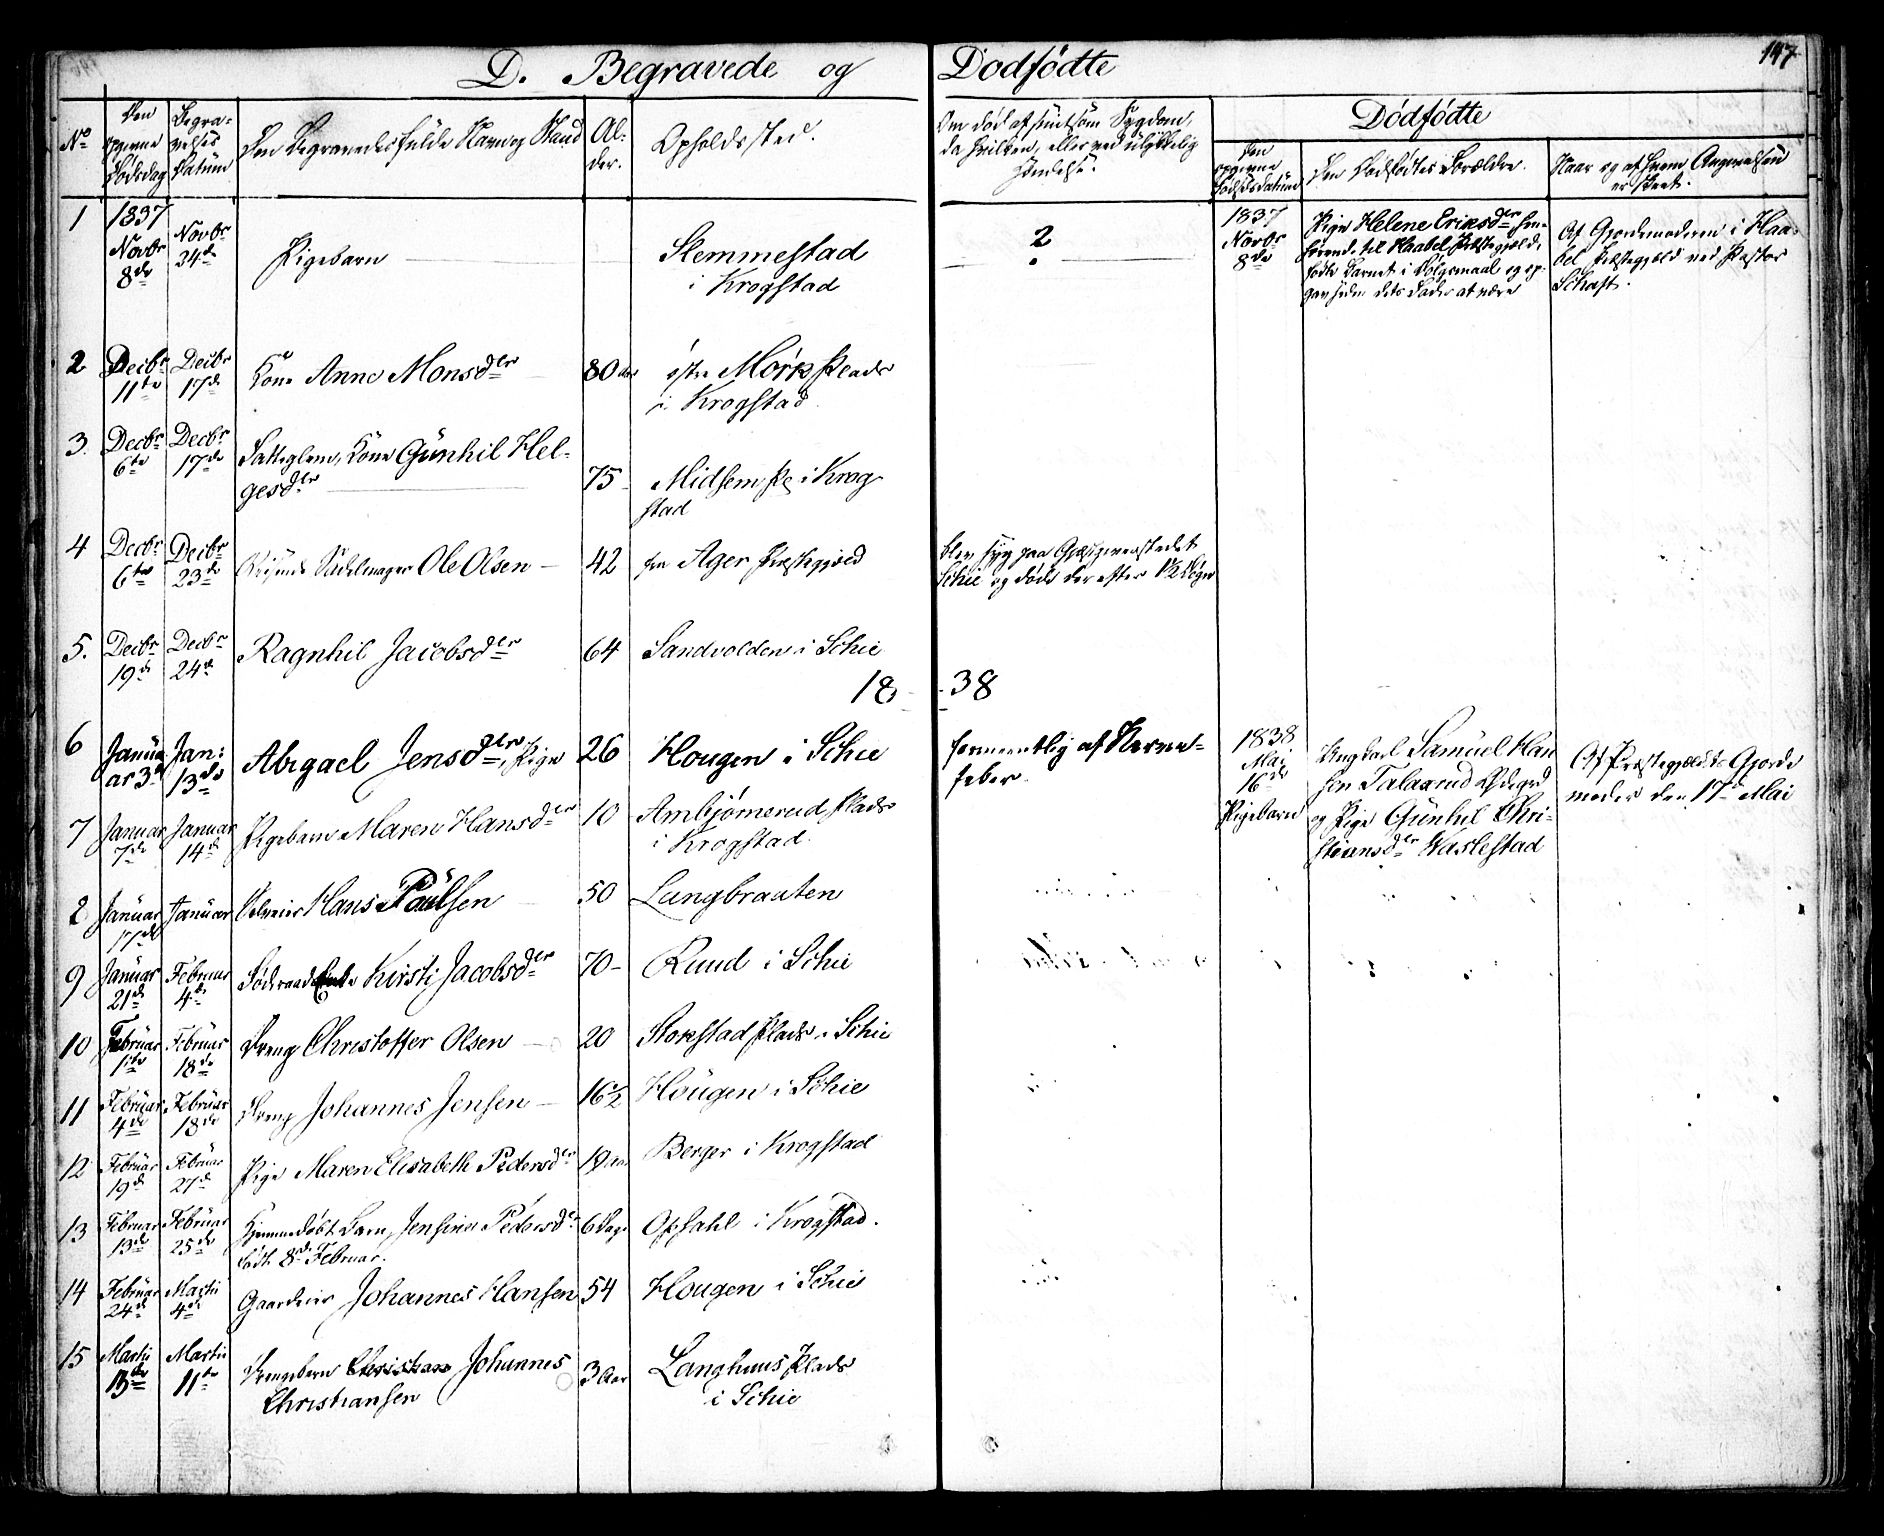 D. Begravede og Dødfødte
147
No
Den opgivne Dødsdag
Begravelses Datum
Den Begravedes fulde Navn og Stand
Alder.
Opholdssted.
Om død af smitsom Sygdom,
da hvilken, eller ved ulykkelig
Hendelse.
Dødfødte
Den opgivne Fødselsdatum
Den Dødfødtes Forældre.
Naar og af hvem Anmeldelsen
er skeet.
1 1837 Novbr 8de Novbr 24de Pigebarn Stemmestad
i Krogstad
?
1837 Novbr 8de
Pige Helene Eriksder
til Haabøl Præstegjeld,
fødte Barnet i Dølgsmaal og op-
gav siden dets Fader at være
Af Gjordemoderen i Haa-
bøl Præstegjæld ved Pastor
Schaft.
2 Decbr 11te Decbr 17de Kone Anne Monsder 80 Aar østre Mørk Plads
i Krogstad
3. Decbr 6te Decbr 17de Fattiglem, Kone Gunhil Hel-
gesder 75 Midsem Pl. i Krog
stad
4 Decbr 6te Decbr 23de Sadelmager Ole Olsen 42 fra Ager Præstegjeld
blev syg paa Gjæstgiverstedet
Schie og døde derefter 1½ Døgn
5. Decbr 19de Decbr 24de Ragnhil Jacobsder 64 Sandvolden i Schie
1838
6 Januar 3de Jan: 13de Abigael Jensder, Pige 26 Hougen i Schie
formeentlig af Nerve-
feber.
1838
Mai
16de
Pigebarn
Ungkarl Samuel Han
sen Talaarud
og Pige Gunhil Chri-
stiansder Karlestad
Af Præstegjeldets Gjorde
moder den 17de Mai
7 Januar 7de Januar 14de Pigebarn Maren Hansder 10 Ambjørnerud Plads
i Krogstad.
2 Januar 17de Januar Hans Paulsen 50 Langbraaten
9 Januar 21de Februar 4de Føderaads Enke Kirsti Jacobsder 70 Ruud i Schie
10 Februar 1te Februar 18de Dreng Christoffer Olsen 20 Stokstad Plads i Schie
11 Februar 4de Februar 18de Dreng Johannes Jensen 16½ Hougen i Schie
12 Februar 19de Februar 27de Pige Maren Elisabeth Pedersder 19 Aar Berger i Krogstad
13 Februar 13de Februar 25de Hjemmedøbt Barn, Jensine Pedersder 6 Dage Opsahl i Krogstad.
født 8de Februar.
14 Februar 24de Martii 4de Gaardeier Johannes Hansen 54 Hougen i Schie
15 Martii Martii 11te Drengebarn Johannes
Christiansen 3 Aar Langhuus Plads
i Schie